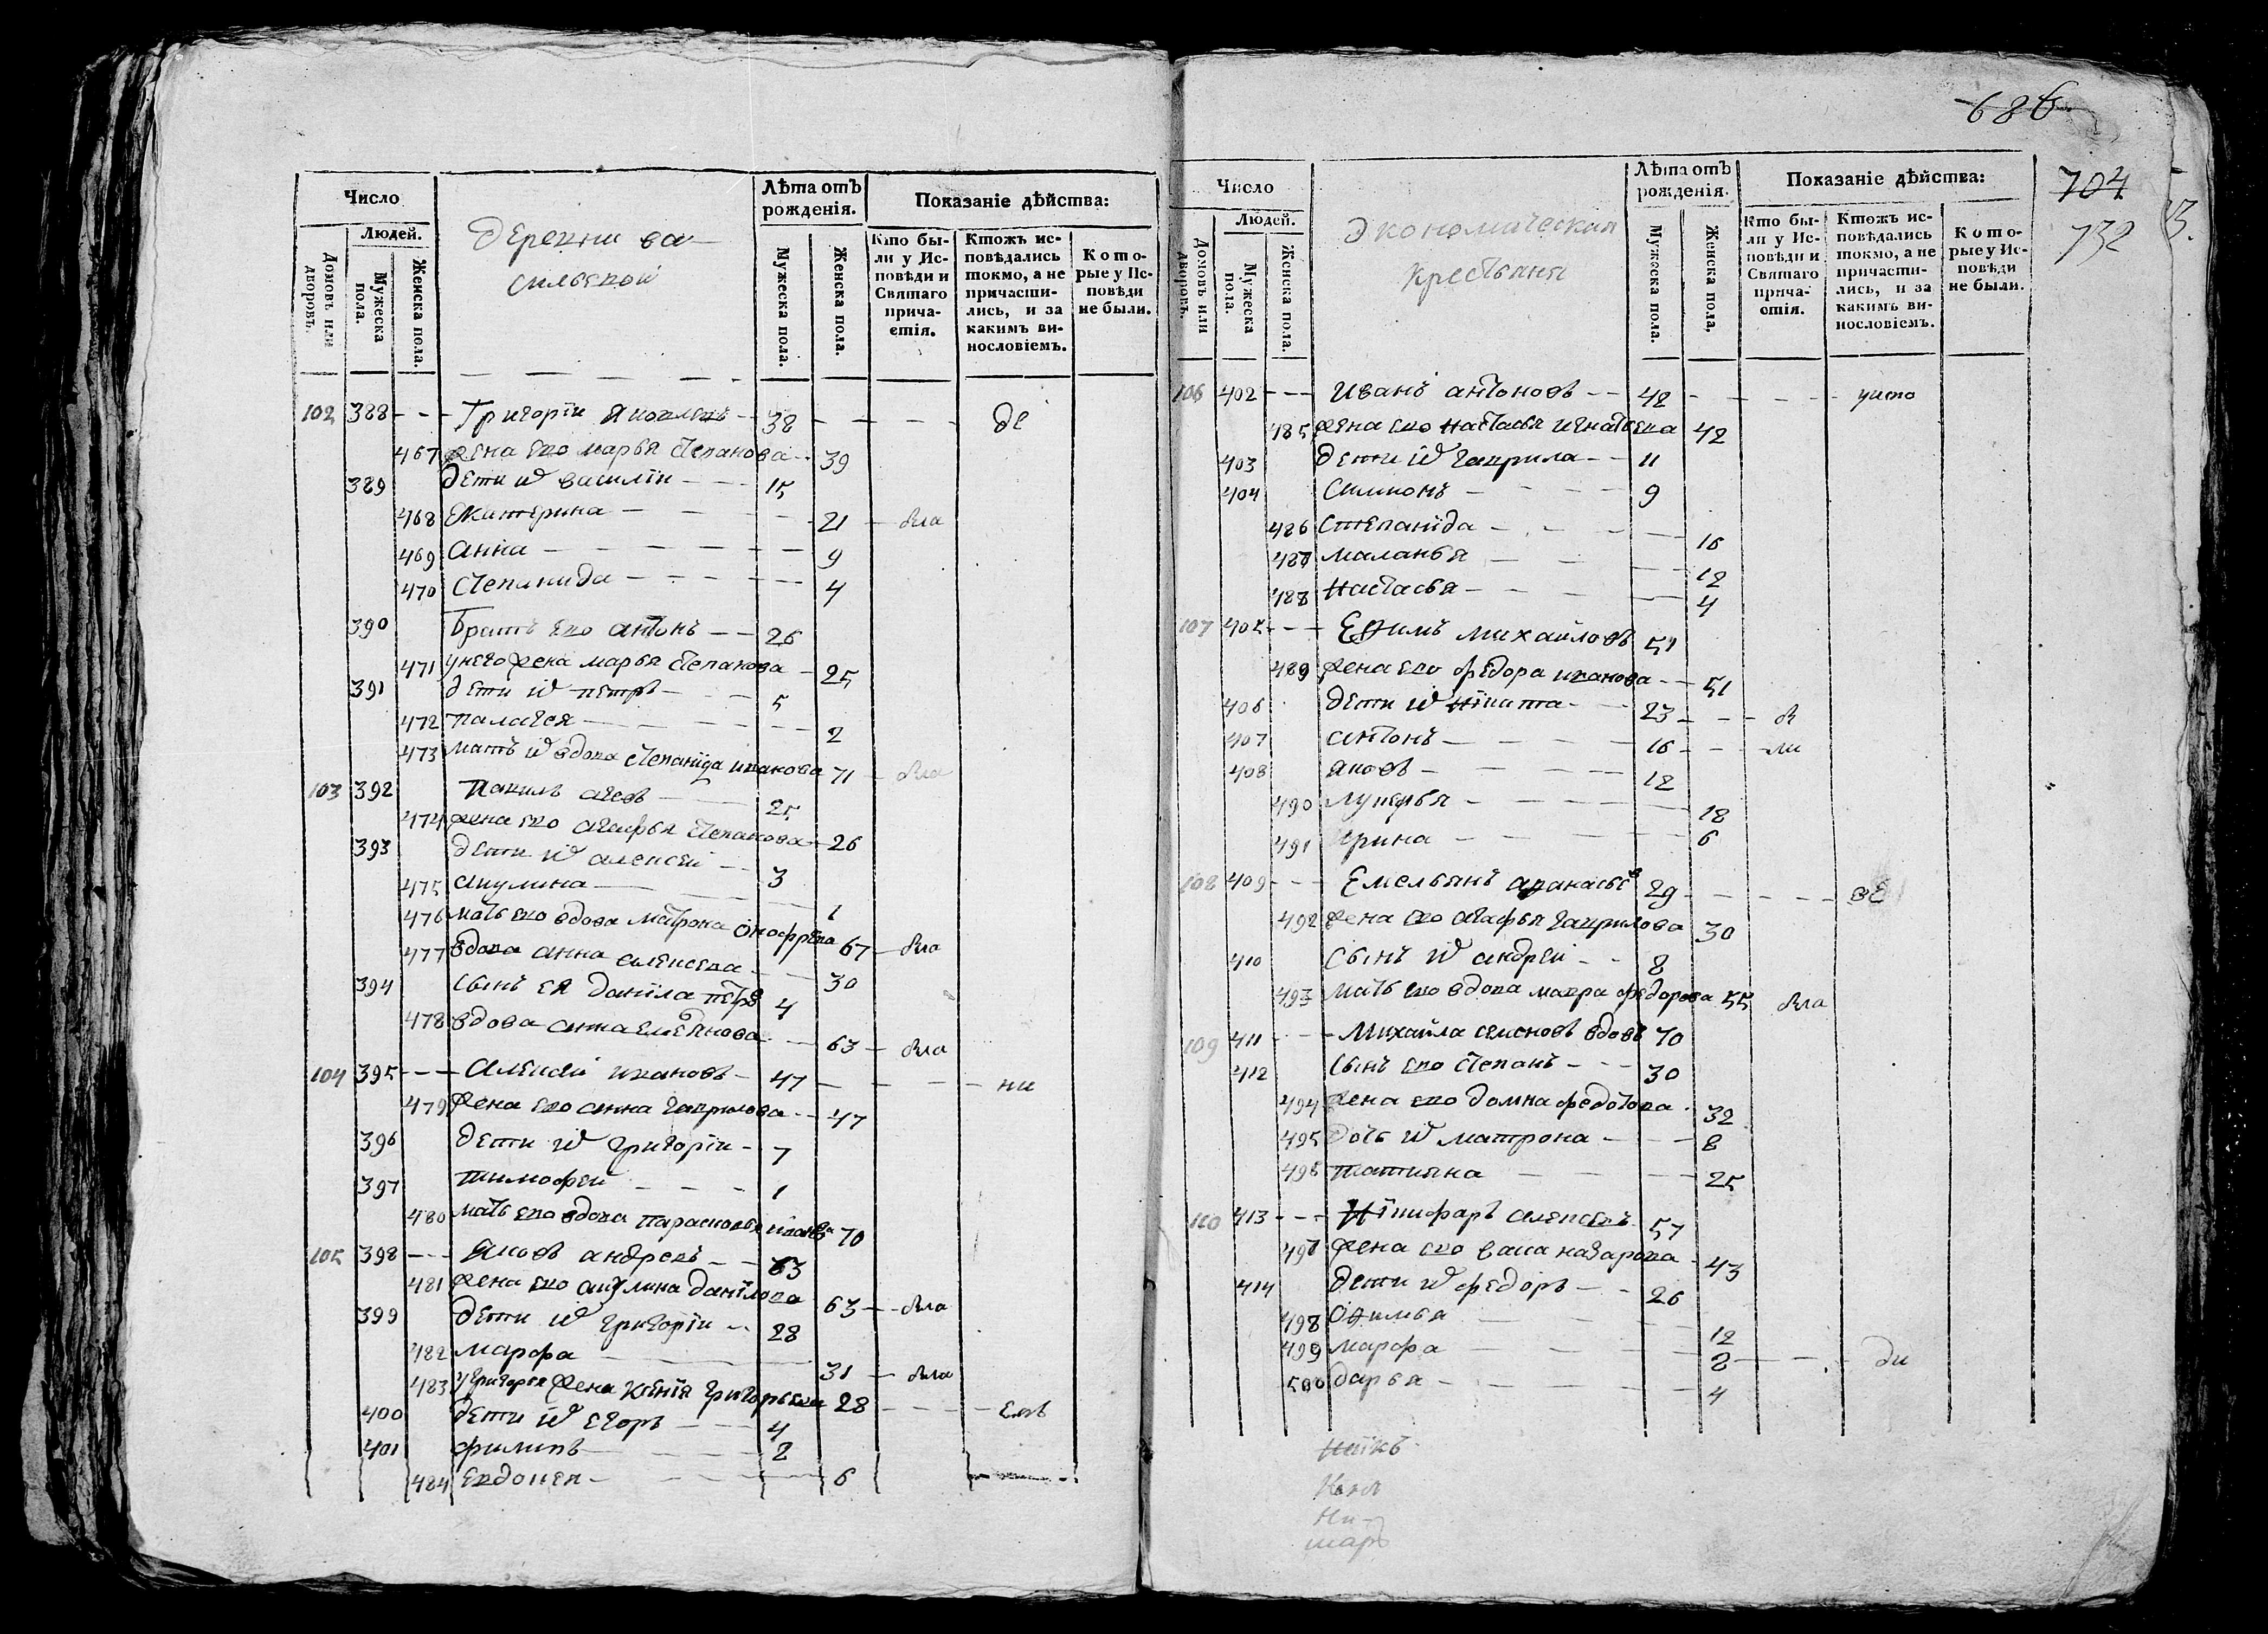 Число
Людей.
Домовъ или дворовъ.
Мужеска пола.
Женска пола.
деревни ва-
сильевой
Лѣта отъ рожденія.
Мужеска пола.
Женска пола.
Показаніе дѣйства:
Кто бы-
ли у Ис-
повѣди и
Святаго
прича-
стія.
Ктожъ ис-
повѣдались
токмо, а не
причасти-
лись, и за
какимъ ви-
нословіемъ.
Кото-
рые у Ис-
повѣди
не были.
102 388 - - - Григоріи Яковлевъ - - 38 - - - - де
467 жена ево марья Степанова - - 39
389 дети ѿ василіи - - - 15
468 Екатерина - - - 21 - вла
469 анна - - - 9
470 Степанида - - - 4
390 Братъ ево антонъ - - 26
471 у него жена марья Степанова - 25
391 дети ѿ петръ - - - 5
472 палагея - - - 2
473 мать ѿ вдова Степанида иванова 71 - вла
103 392 Павилъ агеевъ - - 25
474 жена ево агафья Степанова - 26
393 дети ѿ алексеи - - 3
475 акулина - - - 1
476 мать ево вдова матрона онофрева 67 - вла
477 вдова анна алексева - - 30
394 сынъ ея данила петро 4
478 вдова анна емельянова - - 63 - вла
104 395 - - - Алексеи ивановъ - 47 - - - - ни
479 жена ево анна гаврилова - - 47
396 дети ѿ григоріи - 7
397 тимофеи - - - 1
480 мать ево вдова парасковья иванова 70
105 398 - - - Яковъ андревъ - - 63
481 жена ево акулина данілова 63 - - вла
399 дети ѿ григоріи - - 28
482 марфа - - - 31 - вла
483 у григорья жена ксенія григорьева 28 - - - -
400 дети ѿ егоръ - - 4
401 филипъ - - - 2
484 евдокея - - - 6
686
704
732
Число
Людей.
Домовъ или дворовъ.
Мужеска пола.
Женска пола.
Экономическия
крестьяня
Лѣта отъ рожденія.
Мужеска пола.
Женска пола.
Показаніе дѣйства:
Кто бы-
ли у Ис-
повѣди и
Святаго
прича-
стія.
Ктожъ ис-
повѣдались
токмо, а не
причасти-
лись, и за
какимъ ви-
нословіемъ.
Кото-
рые у Ис-
повѣди
не были.
106 402 - - - Иванъ антоновъ - - 42 - - - -
485 жена ево настасья игнатьева 42
403 дети ѿ гаврила - - 11
404 Симионъ - - - 9
486 Степанида - - - 16
487 маланья - - - 12
488 настасья - - - 4
107 405 - - - Ефимъ михайловъ 51
489 жена ево федора иванова - - 51
406 дети ѿ нікита - - 23 - - - в
407 антонъ - - - 16 - - - ли
408 яковъ - - - 12
490 лукерья - - - 18
491 ирина - - - 6
108 409 - - - Емельянъ афанасьев 29 - - - -
492 жена ево агафья гаврилова 30
410 Сынъ ѿ андреи - - 8
493 мать ево вдова мавра федорова 55 вла
109 411 - - - Михайла семеновъ вдовъ 70
412 Сынъ ево Степанъ - - - 30
494 жена ево домна федотова - 32
495 дочь ѿ матрона - - - 8
496 татияна - - - 25
110 413 - - - Нікифаръ алексевъ 57
497 жена ево васа назарова - 43
414 дети ѿ федоръ - - 26
498 Офимья - - - 12
499 марфа - - - 8 - - - ди
500 дарья - - - 4